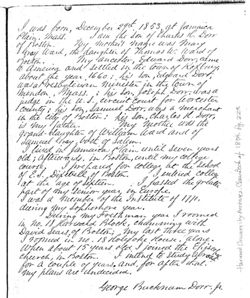 I was born, December 29th, 1853, at Jamaica
Plain, Mass. I am the son of Charles H. Dorr
of Boston. My mother's name was Mary
Gray Ward, the daughter of Thomas W. Ward
of Boston. My ancestor, Edward Dorr, came
to America, and settled in the town of Roxbury
about the year 1660; his son, Edward Dorr
was Minister in the town of
Mendon, Mass; his son, Joseph Dorr, was a
judge in the U.S. circuit court for Worcester
County; his son, Samuel Dorr, was a merchant
in the city of Boston; his son, Charles H. Dorr,
is my father. My mother was the
grand-daughter of William Ward and of
Samuel Gray, both of Salem.
I lived in Jamaica Plain, until seven years
old; afterwards, in Boston, until my college
course. I prepared for college at the School
of E.S. Dixwell of Boston. I entered college
at the age of sixteen. I passed the greater
part of my Senior year, in Europe.
I was a member of the Institute of 1770,
during my Sophomore year.
During my Freshman year I roomed
in no. chumming with
David Sears, of Boston. My last three years
I roomed in no. 18 Holyoke House, alone.
When about 15 years old I joined the
church, in Boston. I intend to study abroad
for a couple of years and, for after that
my plans are undecided.
George Bucknam Dorr, Jr.